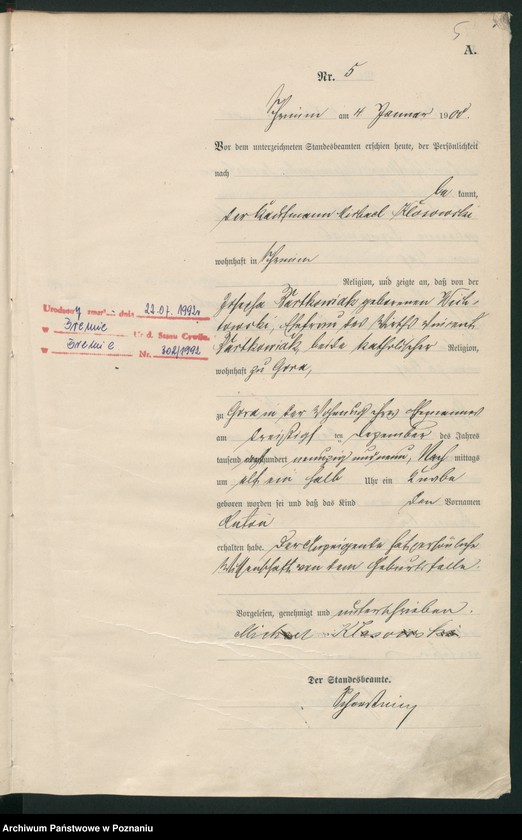 5
A.
Nr. 5
Schrimm am 4 Januar 1900.
Vor dem unterzeichneten Standesbeamten erschien heute, der Persönlichkeit
nach
be kannt,
der Kaufmann Michael Klosowski
wohnhaft in Schrimm
Religion, und zeigte an, daß von der
Josepha Bartkowiak geborenen
Ehefrau des Wirths Vincent
Bartkowiak, beide katholischer Religion,
wohnhaft zu Gora,
zu Gora in der Wohnung ihres Ehemannes
am dreißigsten Dezember des Jahres
tausend acht hundert neunzig und neun, Nach mittags
um elf ein halb Uhr ein Knabe
geboren worden sei und daß das Kind den Vornamen
Anton
erhalten habe. Der Anzeigende hat persönliche
Wissenschaft von dem Geburtsfalle.
Vorgelesen, genehmigt und unterschrieben.
Michael Klosowski
Der Standesbeamte.
Urodzony zmarł dnia 22.07.1992r
w Śremie Urd. Stanu Cywiln.
w Śremie Nr. 302/1992
Archiwum Państwowe w Poznaniu